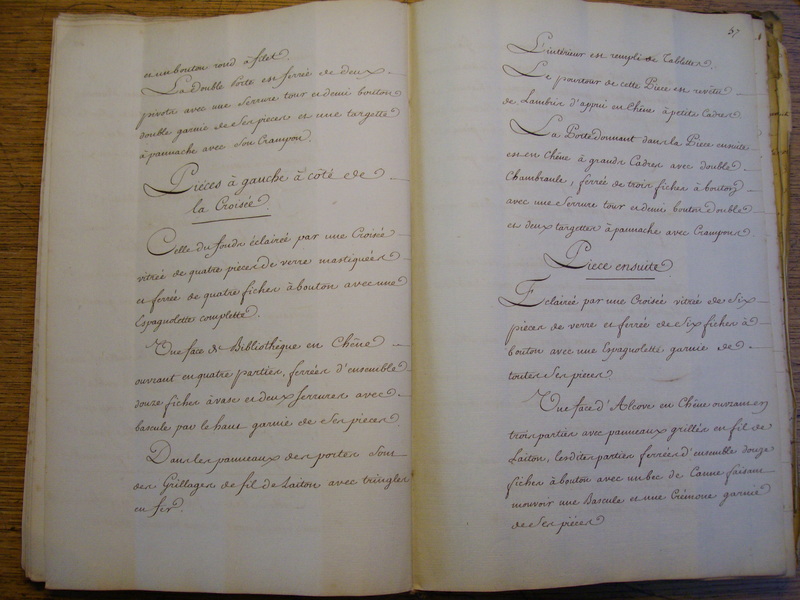 et un bouton rond à filet.
La double Porte est ferrée de deux
pivots avec une serrure tour et demi bouton
double garnie de ses pieces et une targette
à pannache avec son Crampon.
Piéces à gauche à côté de
la Croisée.
Celle du fonds éclairée par une Croisée
vitrée de quatre pieces de verre mastiquées
et ferrée de quatre fiches à bouton avec une
Espagnolette complette.
Une face de Bibliothèque en Chêne
ouvrant en quatre parties, ferrées d'ensemble
douze fiches à vase et deux serrures avec
bascule par le haut garnie de ses pieces
Dans les panneaux des portes sont
des Grillages de fil de Laiton avec tringles
en fer.
57
L'intérieur est rempli de Tablettes.
Le pourtour de cette Piece est revêtu
de Lambris d'appui en Chêne à petits Cadres
La Porte donnant dans la Piece ensuite
est en Chêne à grands Cadres avec double
Chambranle, ferrée de trois fiches à bouton
avec une serrure tour et demi bouton double
et deux targettes à pannache avec Crampons.
Piece ensuite
Eclairée par une Croisée vitrée de six
pieces de verre et ferrée de six fiches à
bouton avec une Espagnolette garnie de
toutes ses pieces
Une face d'Alcove en Chêne ouvrant en
trois parties avec panneaux grillés en fil de
Laiton, lesdites parties ferrées d'ensemble douze
fiches à bouton avec un bec de Canne faisant
mouvoir une Bascule et une Crémone garnie
de ses piéces